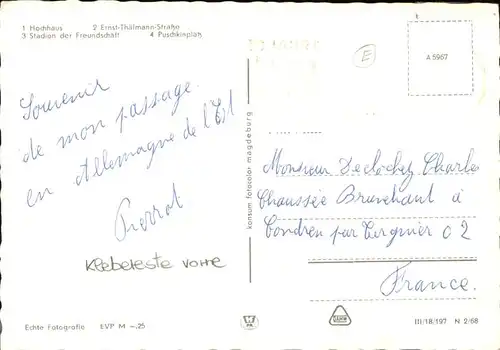 1 Hochhaus 2 Ernst-Thälmann-Straße
3 Stadion der Freundschaft 4 Puschkinplatz
A 5967
E
Souvenir
de mon passage
en Allemagne de l'Est
Pierrot
Klebereste vorne
konsum fotocolor magdeburg
Monsieur Declochez Charles
Chaussée Brunehaut à
Condren par Tergnier 02
France.
Echte Fotografie EVP M -.25
III/18/197 N 2/68